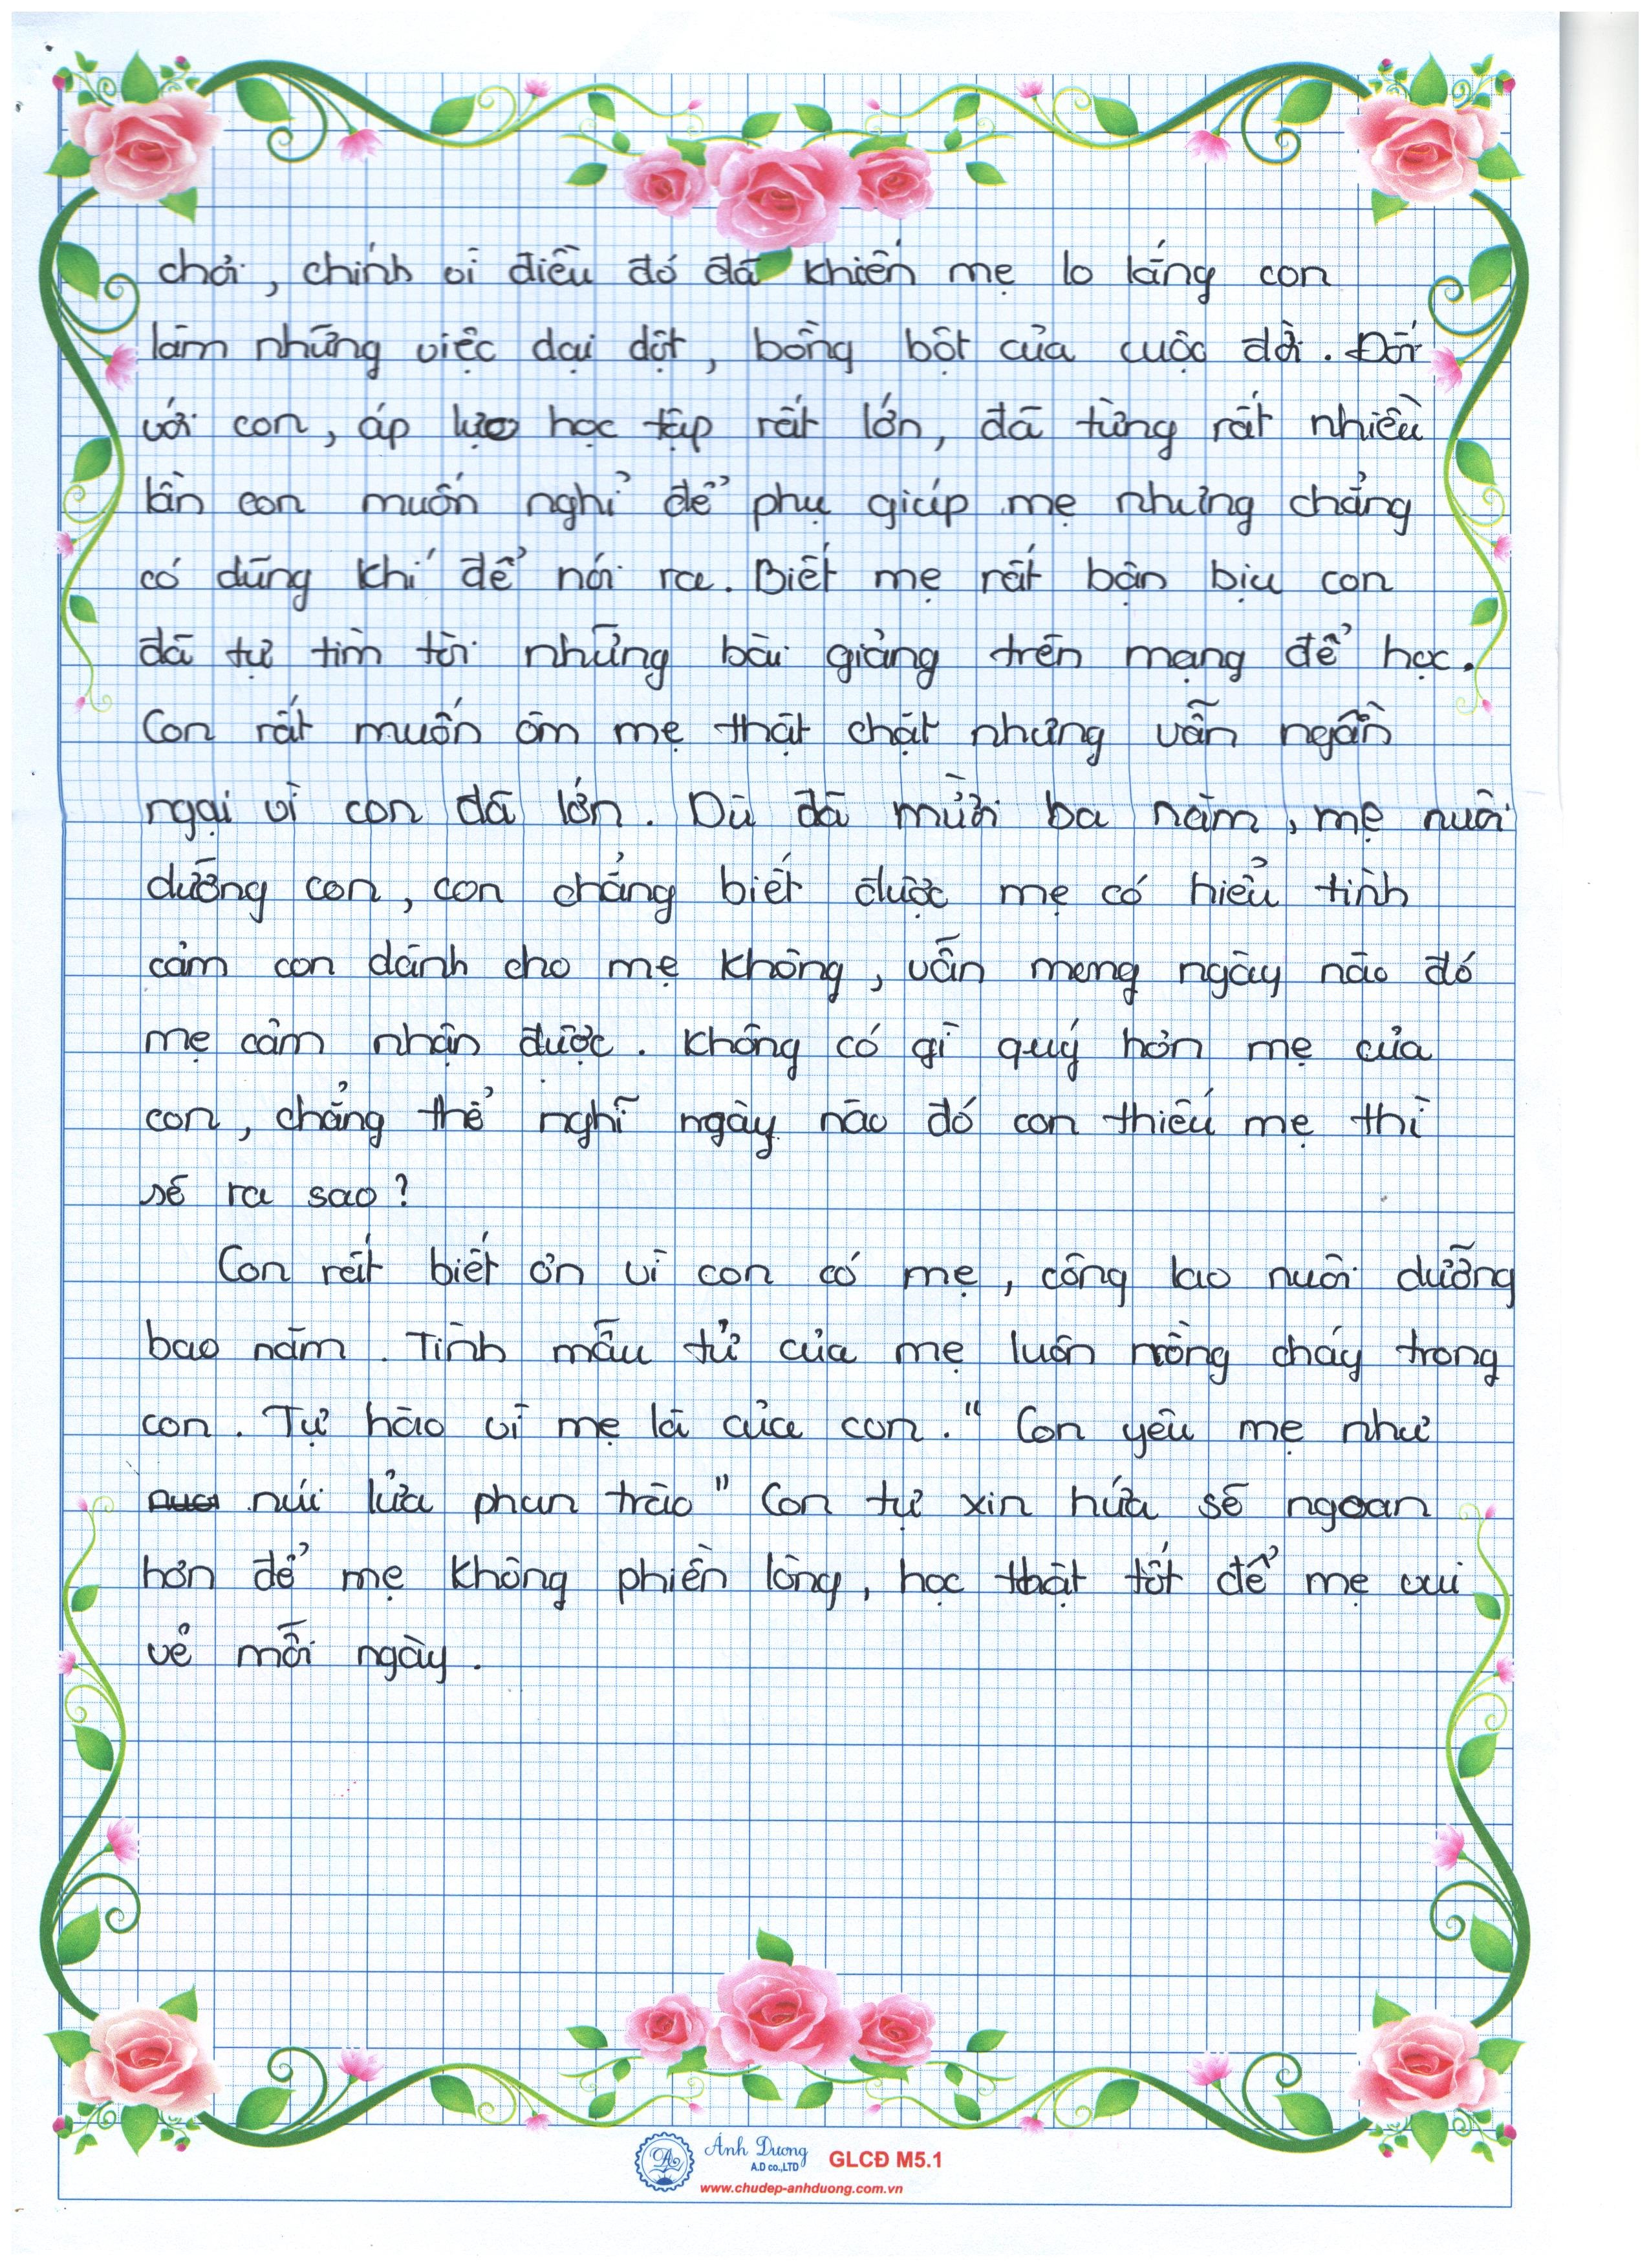 chơi, chính vì điều đó đã khiến mẹ lo lắng con
làm những việc dại dột, bồng bột của cuộc đời. Đối
với con, áp lực học tập rất lớn, đã từng rất nhiều
lần con muốn nghỉ để phụ giúp mẹ nhưng chẳng
có dũng khí để nói ra. Biết mẹ rất bận bịu con
đã tự tìm tòi những bài giảng trên mạng để học.
Con rất muốn ôm mẹ thật chặt nhưng vẫn ngần
ngại vì con đã lớn. Dù đã mười ba năm, mẹ nuôi
dưỡng con, con chẳng biết được mẹ có hiểu tình
cảm con dành cho mẹ không, vẫn mong ngày nào đó
mẹ cảm nhận được. Không có gì quý hơn mẹ của
con, chẳng thể nghĩ ngày nào đó con thiếu mẹ thì
sẽ ra sao?
Con rất biết ơn vì con có mẹ, công lao nuôi dưỡng
bao năm. Tình mẫu tử của mẹ luôn nồng cháy trong
con. Tự hào vì mẹ là của con. " Con yêu mẹ như
núi lửa phun trào" Con tự xin hứa sẽ ngoan
hơn để mẹ không phiền lòng, học thật tốt để mẹ vui
vẻ mỗi ngày.
Ánh Dương
A.D co.,LTD
GLCĐ M5.1
www.chudep-anhduong.com.vn